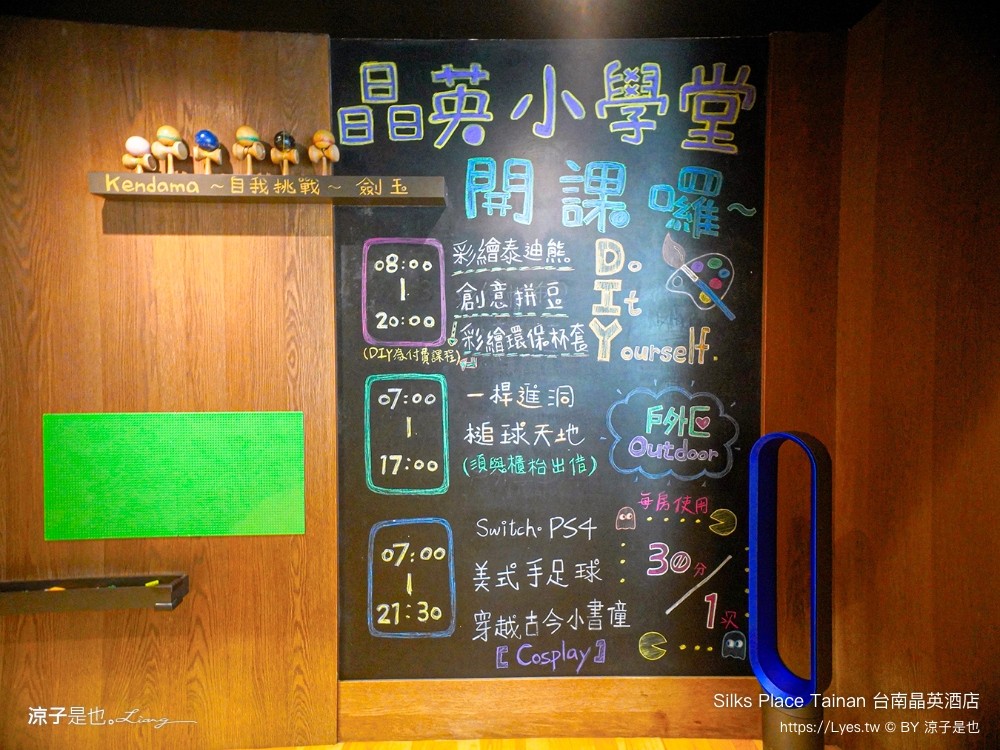 晶英小學堂
開課囉~
Kendama ~自我挑戰~ 劍玉
08:00
|
20:00
(DIY為付費課程)
彩繪泰迪熊
創意拼豆
彩繪環保杯套
Do
It
Yourself.
07:00
|
17:00
一桿進洞
槌球天地
(須與櫃枱出借)
戶外區
Outdoor
07:00
|
21:30
Switch·PS4
美式手足球
穿越古今小書僮
【Cosplay】
每房使用
30分/1次
Silks Place Tainan 台南晶英酒店
https://Lyes.tw © BY 涼子是也
涼子是也。Liang